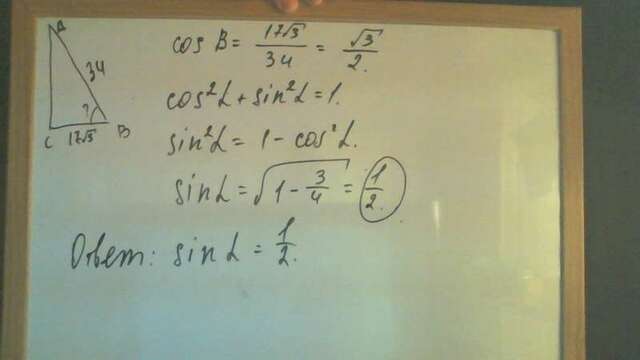 A
34
?
C 17√3 B
cos B = 17√3/34 = √3/2.
cos²α + sin²α = 1.
sin²α = 1 - cos²α.
sin α = √(1 - 3/4) = 1/2.
Ответ: sin α = 1/2.